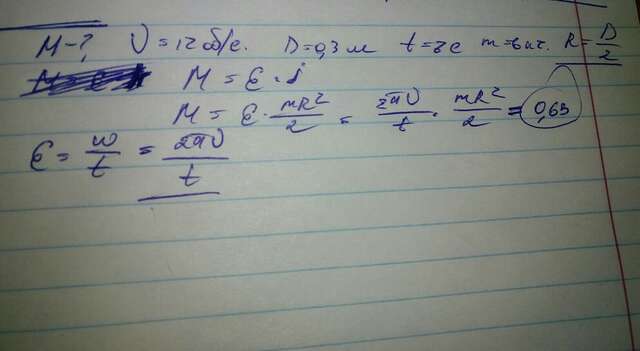 M-? υ=12 об/с. D=0,3 м t=8 с m=6 кг. R=D/2
M = ε · J
M = ε · mR²/2 = 2πυ/t · mR²/2 = 0,63
ε = ω/t = 2πυ/t